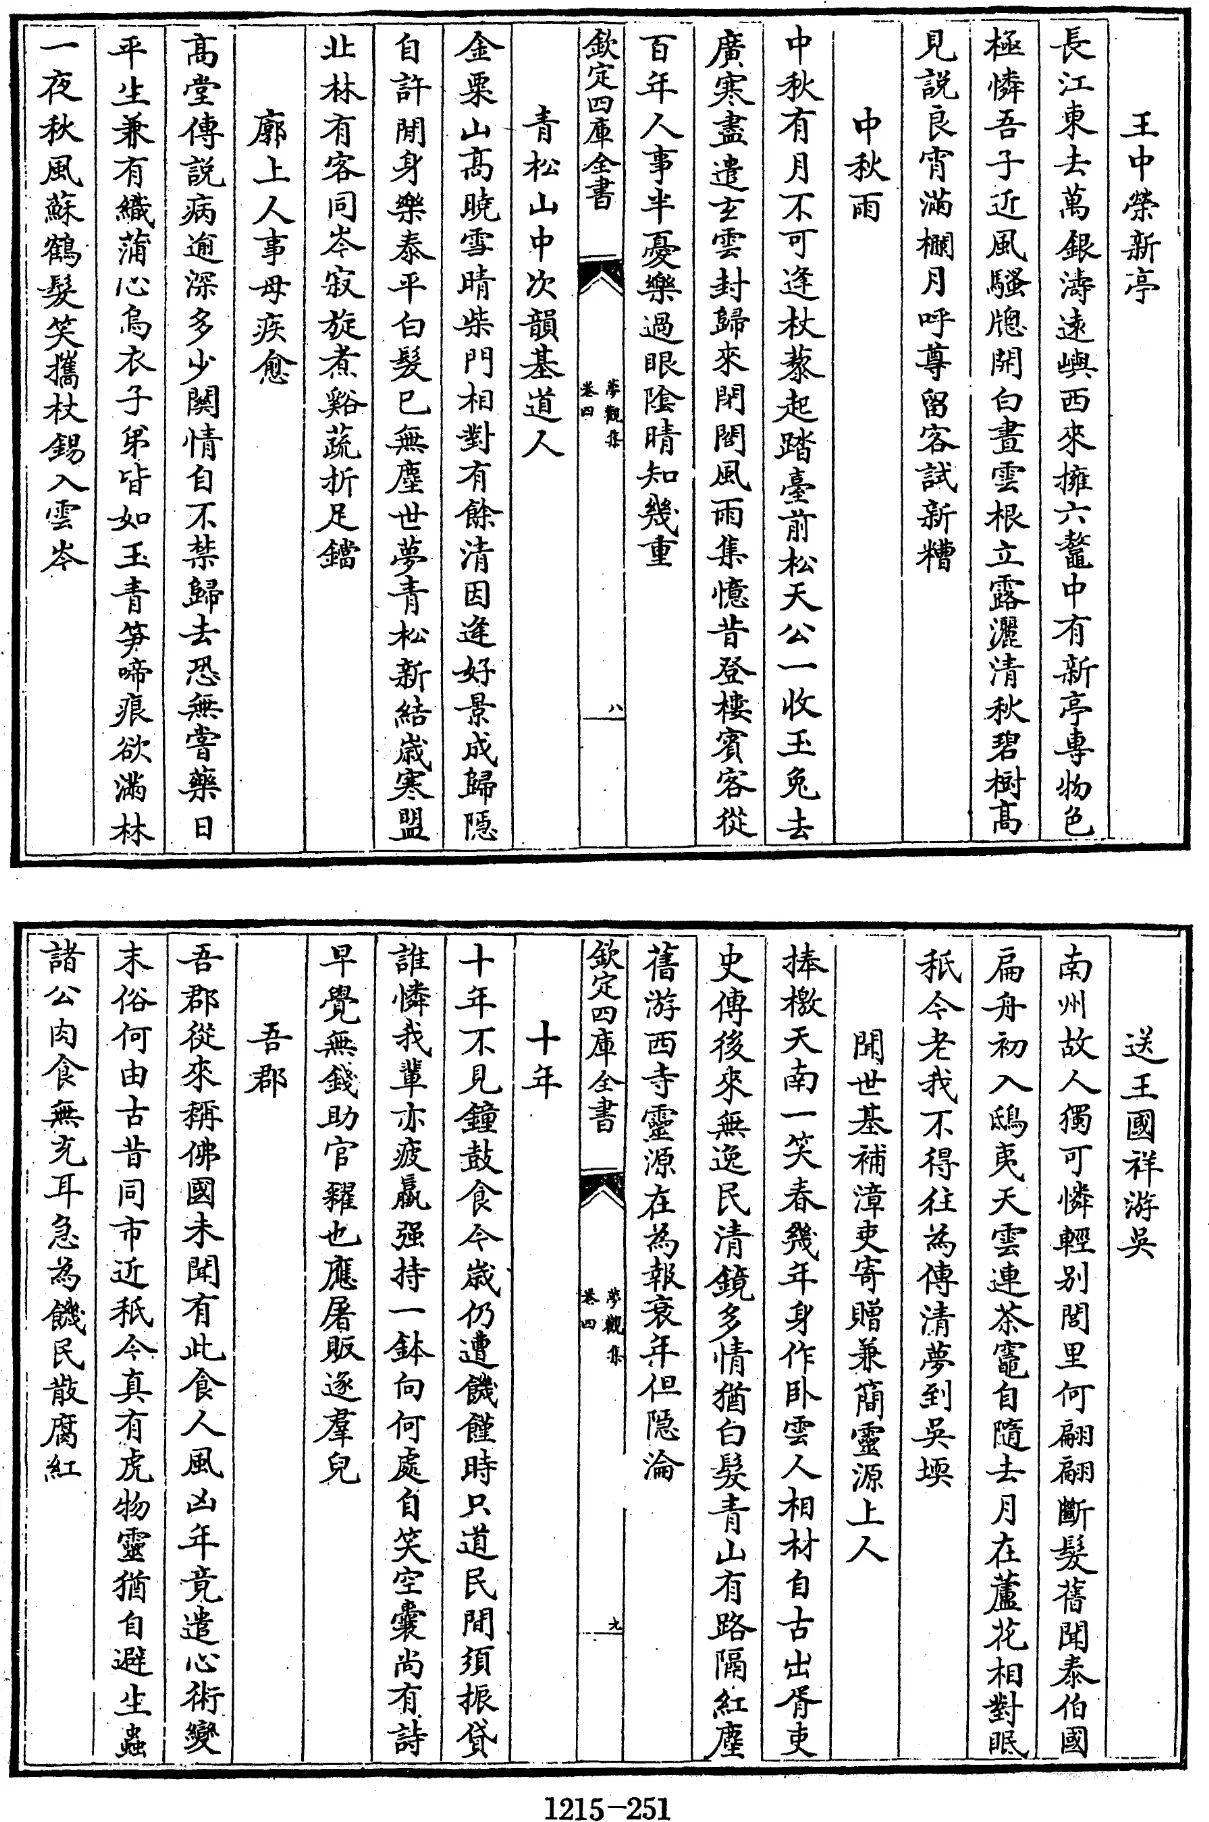 王中榮新亭
長江東去萬銀濤遠嶼西來擁六鼇中有新亭專物色
極憐吾子近風騷牕開白晝雲根立露灑清秋碧樹髙
見說良宵滿欄月呼尊留客試新糟
中秋雨
中秋有月不可逢杖藜起踏臺前松天公一收玉兎去
廣寒盡遣玄雲封歸來閉閤風雨集憶昔登樓賓客從
百年人事半憂樂過眼陰晴知幾重
欽定四庫全書
夢觀集
卷四
八
青松山中次韻基道人
金粟山髙曉雪晴柴門相對有餘清因逢好景成歸隠
自許閒身樂泰平白髮已無塵世夢青松新結嵗寒盟
北林有客同岑寂旋煮谿蔬折足鐺
廓上人事母疾愈
髙堂傳說病逾深多少闗情自不禁歸去恐無嘗藥日
平生兼有織蒲心烏衣子弟皆如玉青笋啼痕欲滿林
一夜秋風蘇鶴髮笑攜杖錫入雲岑
送王國祥游吳
南州故人獨可憐輕别閭里何翩翩斷髮舊聞泰伯國
扁舟初入鴟夷天雲連茶竈自隨去月在蘆花相對眠
秖今老我不得往為傳清夢到吳堧
聞世基補漳吏寄贈兼簡靈源上人
捧檄天南一笑春幾年身作卧雲人相材自古出胥吏
史傳後來無逸民清鏡多情猶白髮青山有路隔紅塵
舊游西寺靈源在為報衰年但隠淪
欽定四庫全書
夢觀集
卷四
九
十年
十年不見鐘鼓食今嵗仍遭饑饉時只道民間須振貸
誰憐我輩亦疲羸强持一鉢向何處自笑空囊尚有詩
早覺無錢助官糴也應屠販逐羣兒
吾郡
吾郡從來稱佛國未聞有此食人風凶年竟遣心術變
末俗何由古昔同市近秖今真有虎物靈猶自避生蟲
諸公肉食無充耳急為饑民散腐紅
1215-251